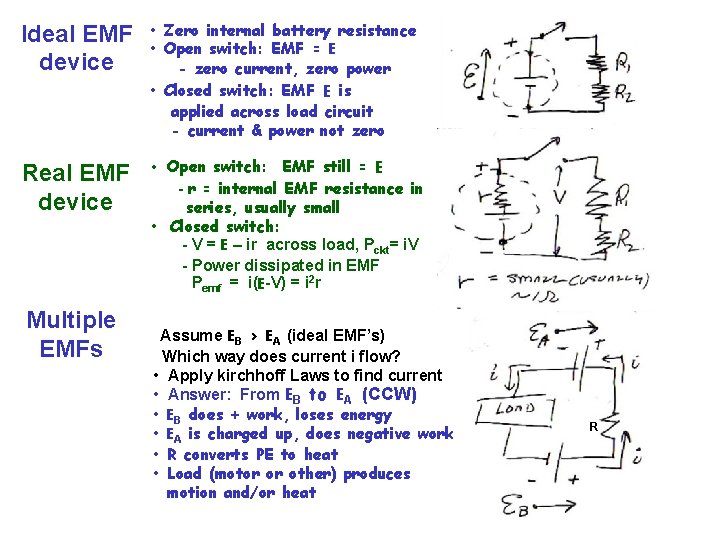 Ideal EMF device
• Zero internal battery resistance
• Open switch: EMF = E
- zero current, zero power
• Closed switch: EMF E is
applied across load circuit
- current & power not zero
+
-
E
R1
R2
Real EMF device
• Open switch: EMF still = E
- r = internal EMF resistance in
series, usually small
• Closed switch:
- V = E – ir across load, Pckt= iV
- Power dissipated in EMF
Pemf = i(E-V) = i²r
+
r
-
V
r = small (usually)
~1Ω
Multiple EMFs
Assume EB > EA (ideal EMF's)
Which way does current i flow?
• Apply kirchhoff Laws to find current
• Answer: From EB to EA (CCW)
• EB does + work, loses energy
• EA is charged up, does negative work
• R converts PE to heat
• Load (motor or other) produces
motion and/or heat
EA
- +
i
i
LOAD
R
i
i
- +
EB